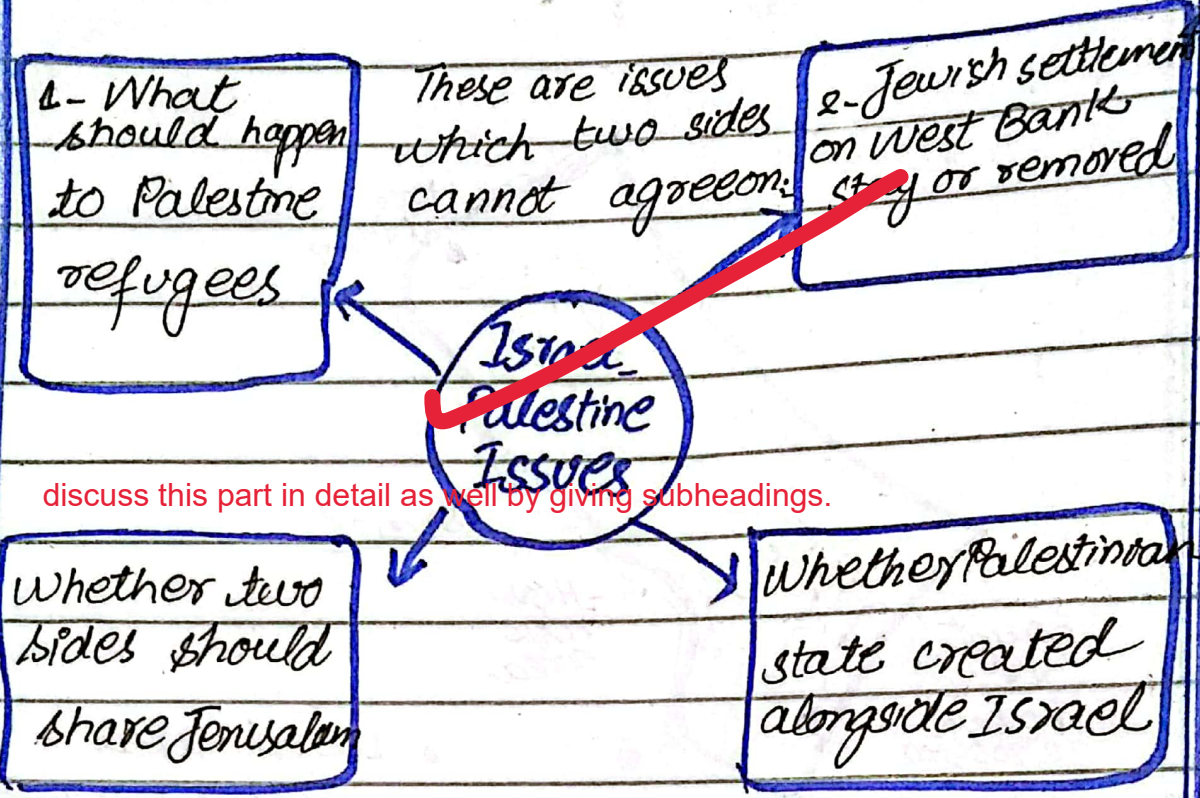 1- What
should happen
to Palestine
refugees
These are issues
which two sides
cannot agreeon:
2- Jewish settlement
on West Bank
stay or removed
Israel_
Palestine
Issues
discuss this part in detail as well by giving subheadings.
Whether two
sides should
share Jerusalam
Whether Palestinian
state created
alongside Israel